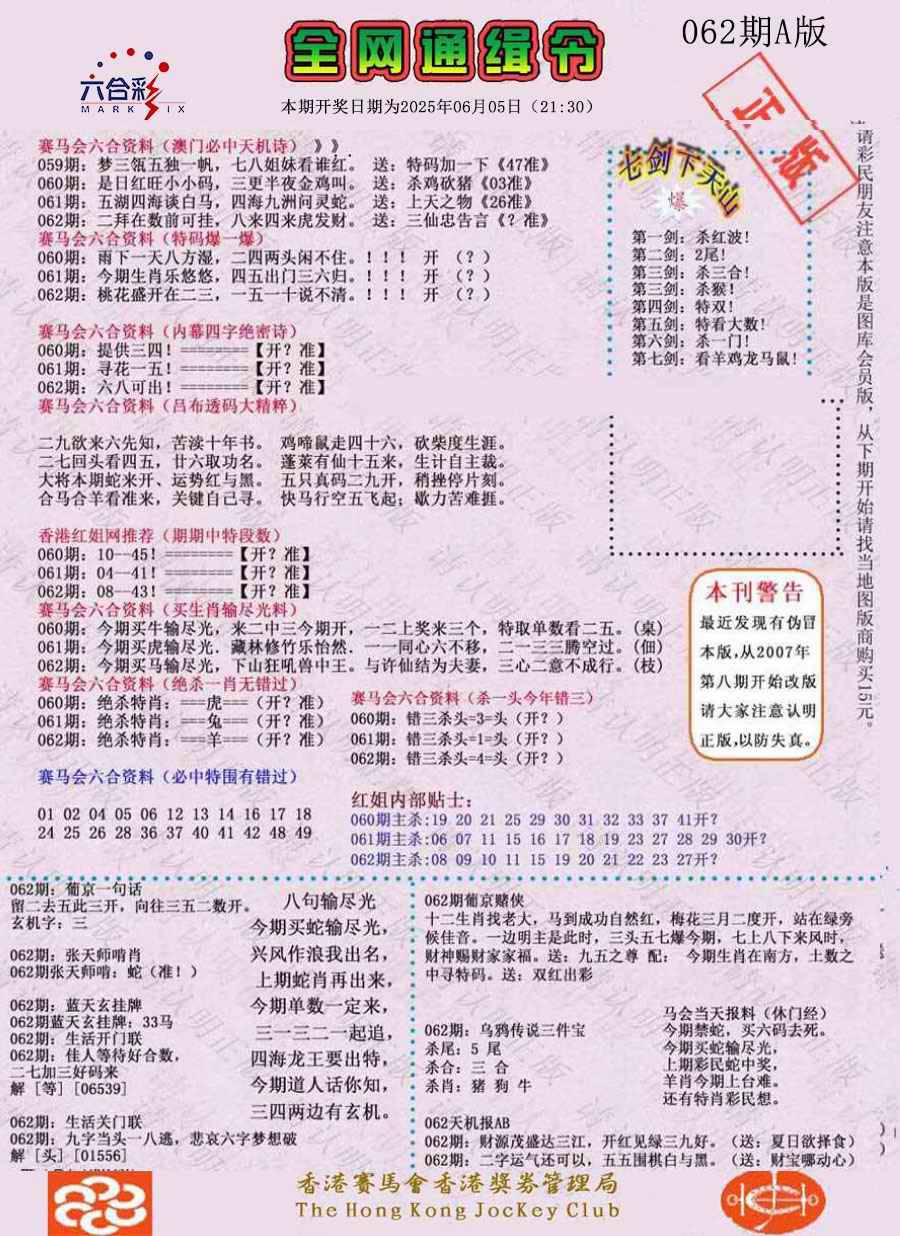 062期A版
全网通缉令
六合彩
MARK SIX
本期开奖日期为2025年06月05日（21:30）
正版
赛马会六合资料（澳门必中天机诗）　》》
059期：梦三瓴五独一帆，七八姐妹看谁红。 送：特码加一下《47准》
060期：是日红旺小小码，三更半夜金鸡叫。 送：杀鸡砍猪《03准》
061期：五湖四海谈白马，四海九洲问灵蛇。 送：上天之物《26准》
062期：二拜在数前可挂，八来四来虎发财。 送：三仙忠告言《？准》
赛马会六合资料（特码爆一爆）
060期：雨下一天八方湿，二四两头闲不住。！！！ 开 （？）
061期：今期生肖乐悠悠，四五出门三六归。！！！ 开 （？）
062期：桃花盛开在二三，一五一十说不清。！！！ 开 （？）
赛马会六合资料（内幕四字绝密诗）
060期：提供三四！========【开？准】
061期：寻花一五！========【开？准】
062期：六八可出！========【开？准】
赛马会六合资料（吕布透码大精粹）
二九欲来六先知，苦渎十年书。 鸡啼鼠走四十六，砍柴度生涯。
二七回头看四五，廿六取功名。 蓬莱有仙十五来，生计自主裁。
大将本期蛇来开、运势红与黑。 五只真码二九开，稍挫停片刻。
合马合羊看准来，关键自己寻。 快马行空五飞起；歇力苦难捱。
香港红姐网推荐（期期中特段数）
060期：10—45！========【开？准】
061期：04—41！========【开？准】
062期：08—43！========【开？准】
赛马会六合资料（买生肖输尽光料）
060期：今期买牛输尽光，来二中三今期开，一二上奖来三个，特取单数看二五。(桌)
061期：今期买虎输尽光．藏林修竹乐怡然．一一同心六不移，二一三三腾空过。(佃)
062期：今期买马输尽光，下山狂吼兽中王。与许仙结为夫妻，三心二意不成行。(枝)
赛马会六合资料（绝杀一肖无错过）
060期：绝杀特肖：===虎===（开？准）
061期：绝杀特肖：===兔===（开？准）
062期：绝杀特肖：===羊===（开？准）
赛马会六合资料（杀一头今年错三）
060期：错三杀头=3=头（开？）
061期：错三杀头=1=头（开？）
062期：错三杀头=4=头（开？）
赛马会六合资料（必中特围有错过）
01 02 04 05 06 12 13 14 16 17 18
24 25 26 28 36 37 40 41 42 48 49
红姐内部贴士：
060期主杀:19 20 21 25 29 30 31 32 33 37 41开？
061期主杀:06 07 11 15 16 17 18 19 23 27 28 29 30开？
062期主杀:08 09 10 11 15 19 20 21 22 23 27开？
七剑下天山
爆
第一剑：杀红波！
第二剑：2尾！
第三剑：杀三合！
第三剑：杀猴！
第四剑：特双！
第五剑：特看大数！
第六剑：杀一门！
第七剑：看羊鸡龙马鼠！
请彩民朋友注意本版是图库会员版，从下期开始请找当地图版商购买15元。
本刊警告
最近发现有伪冒
本版,从2007年
第八期开始改版
请大家注意认明
正版,以防失真。
062期：葡京一句话
留二去五此三开，向往三五二数开。
玄机字：三
062期：张天师啃肖
062期张天师啃：蛇（准！）
062期：蓝天玄挂牌
062期蓝天玄挂牌：33马
062期：生活开门联
062期：佳人等待好合数，
二七加三好码来
解［等］[06539]
062期：生活关门联
062期：九字当头一八逃，悲哀六字梦想破
解［头］[01556]
八句输尽光
今期买蛇输尽光，
兴风作浪我出名，
上期蛇肖再出来，
今期单数一定来，
三一三二一起追，
四海龙王要出特，
今期道人话你知，
三四两边有玄机。
062期葡京赌侠
十二生肖找老大，马到成功自然红，梅花三月二度开，站在绿旁
候佳音。一边明主是此时，三头五七爆今期，七上八下来风时，
财神赐财家家福。送：九五之尊 配： 今期生肖在南方，土数之
中寻特码。送：双红出彩
062期：乌鸦传说三件宝
杀尾：5 尾
杀合：三 合
杀肖：猪 狗 牛
马会当天报料（休门经）
今期禁蛇，买六码去死。
今期买蛇输尽光，
上期彩民蛇中奖，
羊肖今期上台难。
还有特肖彩民想。
062天机报AB
062期：财源茂盛达三江，开红见绿三九好。（送：夏日欲择食）
062期：二字运气还可以，五五围棋白与黑。（送：财宝哪动心）
香港赛馬會香港獎券管理局
The Hong Kong JocKey Club